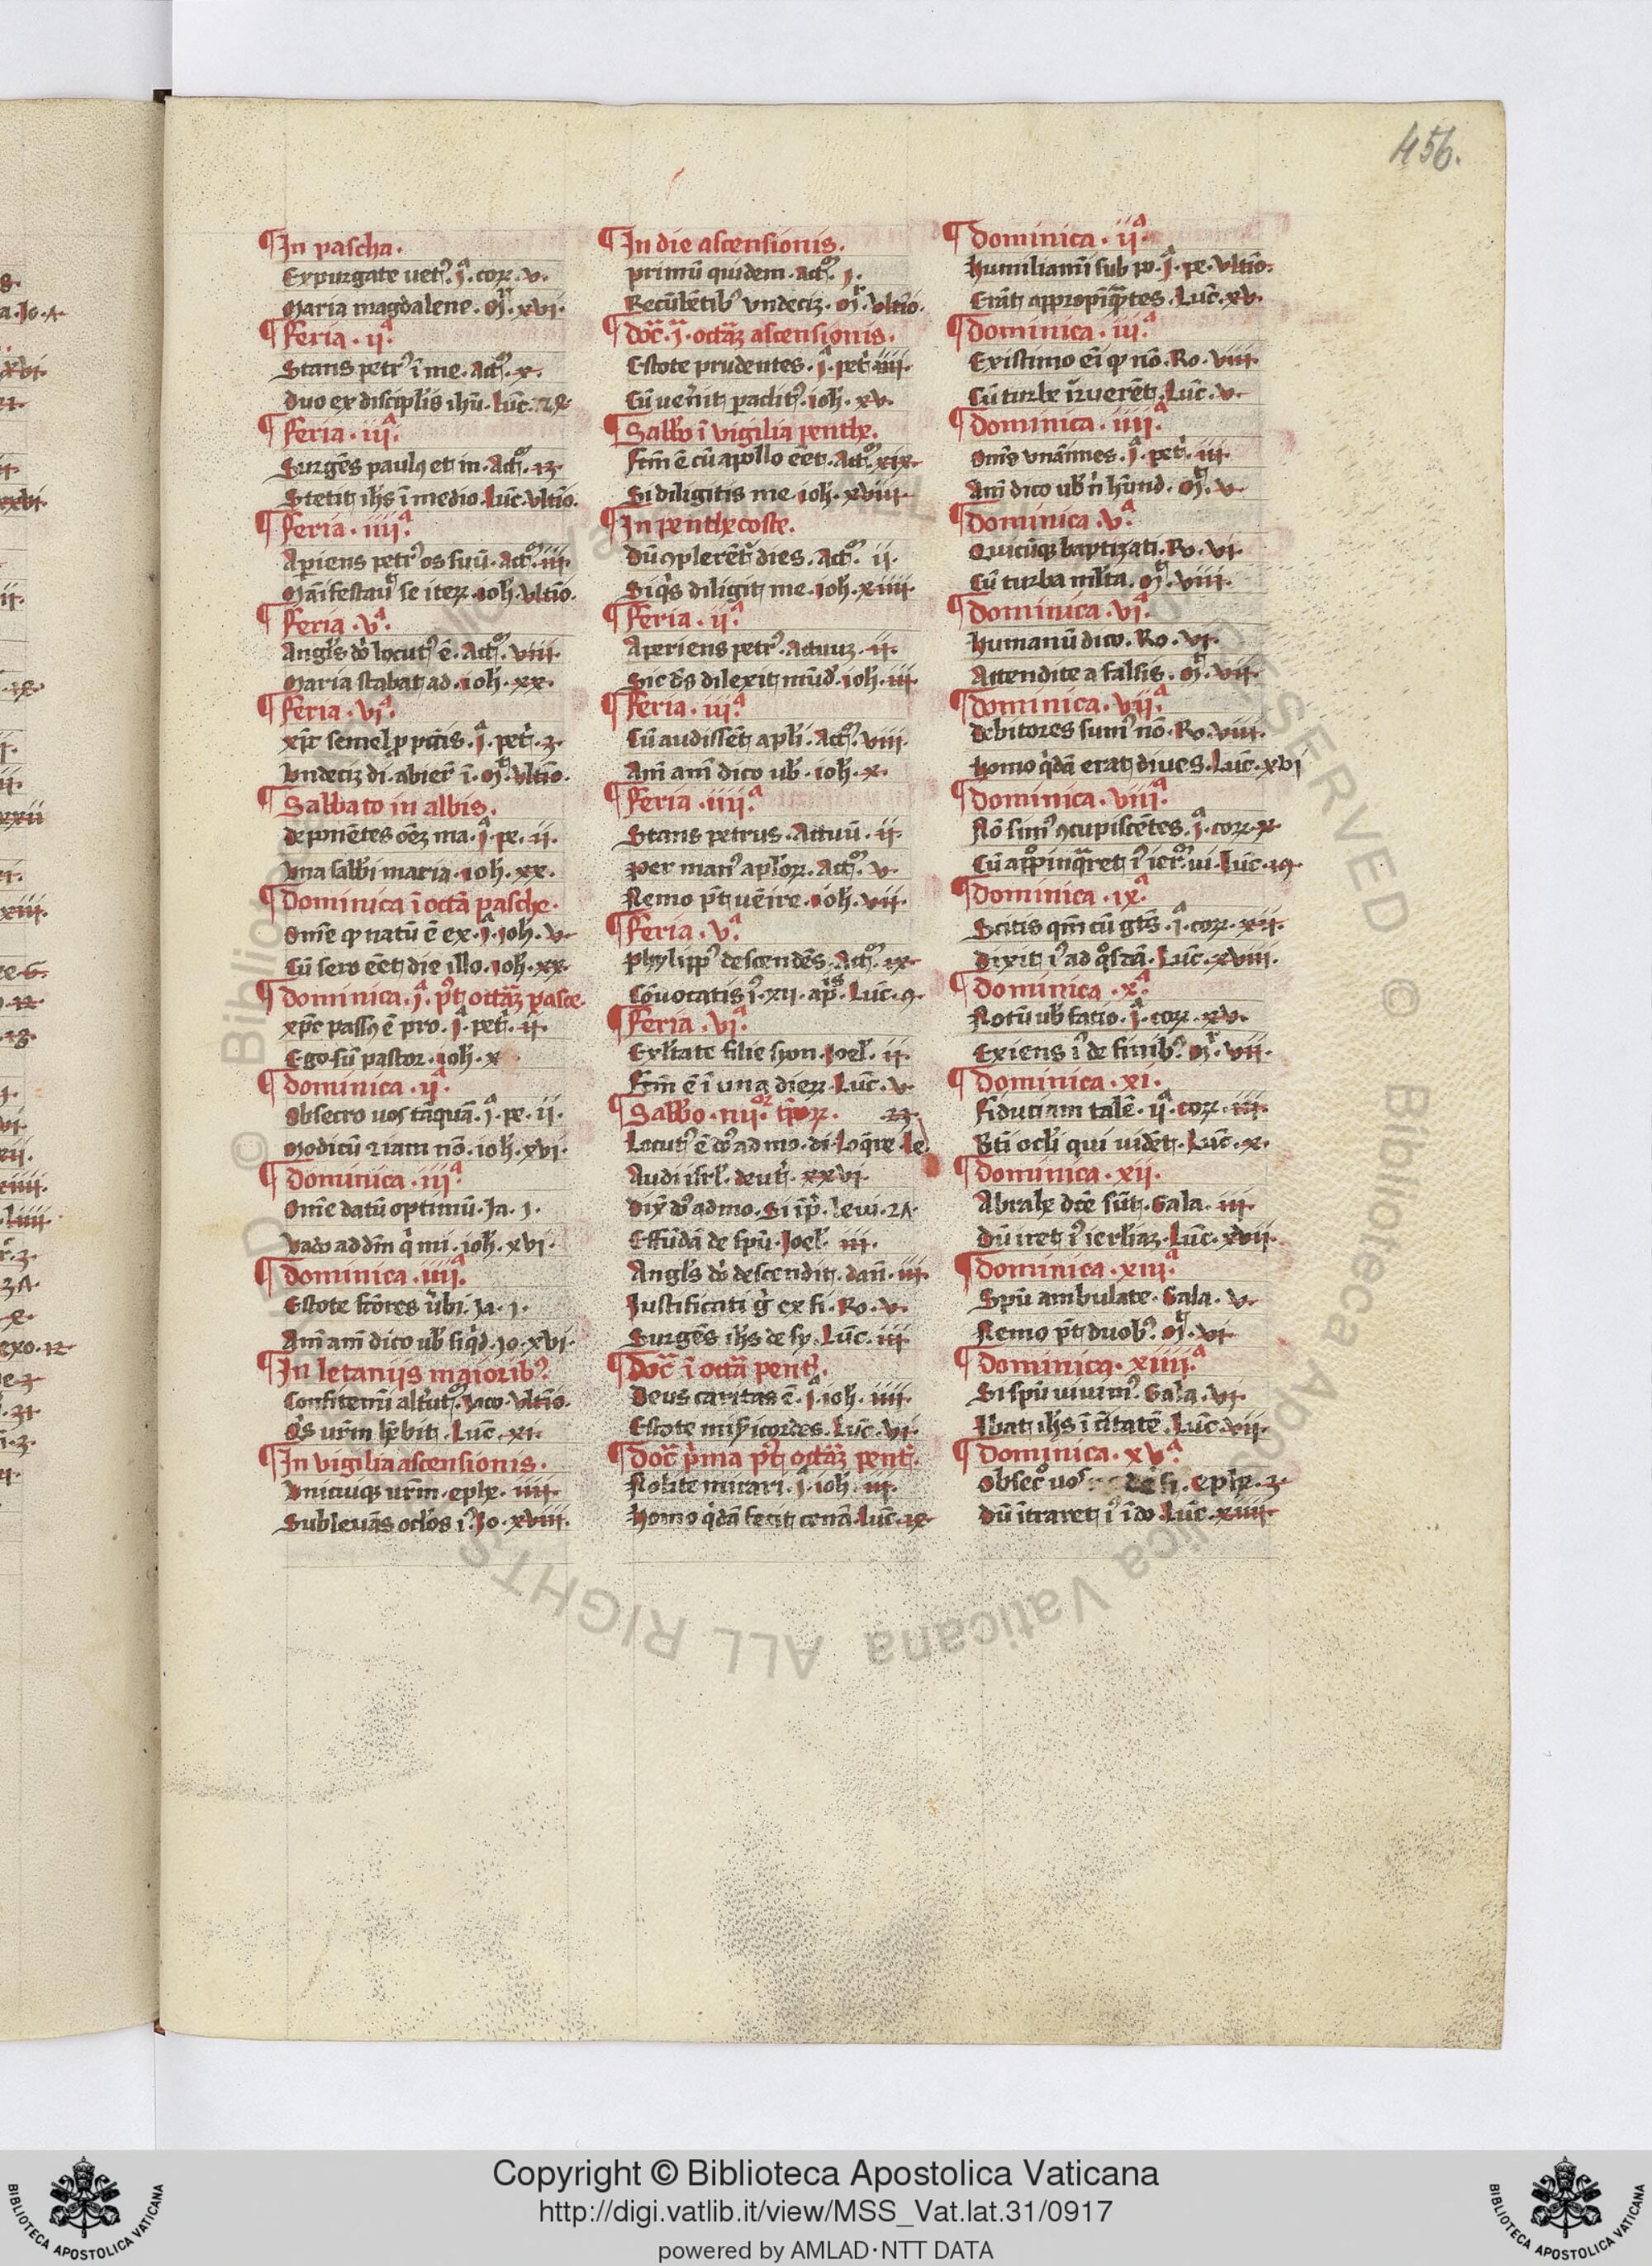 456.
¶ In pascha.
Expurgate uet᷒. j.ª cor. v.
Maria magdalene. Mͬ. xvi.
¶ Feria. ij.ª
Stans petr᷒ ī me. Act᷒. x.
Duo ex discipl̄is ih̄u. Luc̄.
¶ Feria. iij.ª
Surgēs paul᷒ et in. Act᷒. 13.
Stetit ih̄s ī medio. Luc̄. Vltīo.
¶ Feria. iiij.ª
Apiens petr᷒ os suū. Act᷒. iii.
Māifestau̅ se iteꝝ. ioh̄. Vltīo.
¶ Feria. v.ª
Angl̄s dn̄i locut᷒ ē. Act᷒. viii.
Maria stabat ad. ioh̄. xx.
¶ Feria. vi.ª
xp̄c semel ꝓ pctīs. j.ª pet̄. 3.
Vndeciꝫ di. abier̄ ī. M. Vltīo.
¶ Sabbato in albis.
deponētes oēꝫ ma. j.ª pe. ii.
Vna sabbi maria. ioh̄. xx.
¶ Dominica ī octā pasche.
Om̄e qd̄ natū ē ex. j.ª ioh̄. v.
Cū sero eēt die illo. ioh̄. xx.
¶ Dominica. j.ª p̄t octāꝫ pasce.
xp̄c pass᷒ ē pro. j.ª pet̄. ii.
Ego sū pastor. ioh̄. x
¶ Dominica. ij.ª
Obsecro uos tāquā. j.ª pe. ii.
Modicū ⁊ iam nō. ioh̄. xvi.
¶ Dominica. iij.ª
Om̄e datū optimū. Ja. j.
Vado ad dīn q̄ mi. ioh̄. xvi.
¶ Dominica. iiij.ª
Estote fc̄ores ūbi. Ja. j.
Am̄ am̄ dico ub̄ siqd̄. Jo. xvi.
¶ In letaniis maiorib᷒.
Confitemī alt̄ut᷒. Jaco. Vltīo.
Qis ur̄m hēbit. Luc̄. xi.
¶ In vigilia ascensionis.
Vnicuiqꝫ ur̄m. ephe. iiii.
Subleuās ocl̄os i᷒. Jo. xviii.
¶ In die ascensionis.
primū quidem. Act᷒. j.
Recūbētib᷒ vndeciꝫ. Mͬ. Vltīo.
¶ Doc̄. j.ª octāꝫ ascensionis.
Estote prudentes. j.ª pet̄. iiii.
Cū uen̄it paclit᷒. ioh̄. xv.
¶ Sabb̄o ī vigilia penthe.
Fcm̄ ē cū apollo eēt. Act᷒. xix.
Si diligitis me. ioh̄. xviii.
¶ In penthecoste.
Dū ꝯplerēt̄ dies. Act᷒. ii.
Siqis diligit me. ioh̄. xiiii.
¶ Feria. ii.ª
Aperiens petr᷒. Actuuꝫ. ii.
Sic d̄s dilexit mūd̄. ioh̄. iii.
¶ Feria. iii.ª
Cū audissēt apl̄i. Act᷒. viii.
Am̄ am̄ dico ub̄. ioh̄. x.
¶ Feria. iiii.ª
Stans petrus. Actuū. ii.
Per man᷒ apl̄oꝝ. Act᷒. v.
Nemo p̄t uēire. ioh̄. vii.
¶ Feria. v.ª
Phylipp᷒ descendēs. Act᷒. ix.
Cōuocatis i᷒. xii. ap̄. Luc̄. 9.
¶ Feria. vi.ª
Exl̄tate filie syon. Joel. ii.
Fcm̄ ē ī una dieꝝ. Luc̄. v.
¶ Sabb̄o. iiii.ᵒʳ tꝑoꝝ. 23.
Locut᷒ ē dn̄s ad mo. di. Loqre. le
Audi isrl̄. deut̄. xxvi.
Dix̄ dn̄s ad mo. Si ip̄. leui. 26.
Effūdā de spū. Joel. iii.
Angl̄s dn̄i descendit. dan̄. iii.
Justificati g̊ ex fi. Ro. v.
Surgēs ih̄s de sy. Luc̄. iiii.
¶ Doc̄ ī octā pent̄.
Deus caritas ē. j.ª ioh̄. iiii.
Estote mis̄icordes. Luc̄. vi.
¶ Doc̄ p̄ma p̄t octāꝫ pent̄.
Nolite mirari. j. ioh̄. iii.
Homo qdā fecit cenā. Luc̄. 18
¶ Dominica. ii.ª
Humiliamī sub po. j.ª pe. Vltīo.
Erāt appropīqtes. Luc̄. xv.
¶ Dominica. iii.ª
Existimo ei̅ qd̄ nō. Ro. viii.
Cū turbe irruerēt. Luc̄. v.
¶ Dominica. iiii.ª
Om̄s vnāimes. j.ª pet̄. iii.
Am̄ dico ub̄ n̄ hūnd. M. v.
¶ Dominica. v.ª
Quicūqꝫ baptizati. Ro. vi.
Cū turba ml̄ta. M. viii.
¶ Dominica. vi.ª
Humanū dico. Ro. vi.
Attendite a falsis. M. vii.
¶ Dominica. vii.ª
Debitores sum᷒ nō. Ro. viii.
Homo qdā erat diues. Luc̄. xvi
¶ Dominica. viii.ª
Nō sim᷒ ꝯcupiscētes. j.ª cor. x.
Cū appinqret i᷒ ier. ui. Luc̄. 19.
¶ Dominica. ix.ª
Scitis qm̄ cū gtēs. j.ª cor. xii.
Dixit i᷒ ad qosdā. Luc̄. xviii.
¶ Dominica. x.ª
Notū ub̄ facio. j.ª cor. xv.
Exiens i᷒ de finib᷒. Mͬ. vii.
¶ Dominica. xi.
Fiduciam talē. ii.ª cor. iii.
Bt̄i ocl̄i qui uidēt. Luc̄. x.
¶ Dominica. xii.
Abrahe dc̄e sūt. Gala. iii.
Dū iret i᷒ ierl̄laꝫ. Luc̄. xvii.
¶ Dominica. xiii.ª
Spū ambulate. Gala. v.
Nemo p̄t duob᷒. M. vi
¶ Dominica. xiiii.ª
Si spū uiuim᷒. Gala. vi.
Ibat ih̄s ī ciītatē. Luc̄. vii.
¶ Dominica. xv.ª
Obsec̊ uos ephe. 3.
Dū ītraret i᷒ ī do. Luc̄. xiiii.
Copyright © Biblioteca Apostolica Vaticana
http://digi.vatlib.it/view/MSS_Vat.lat.31/0917
powered by AMLAD·NTT DATA